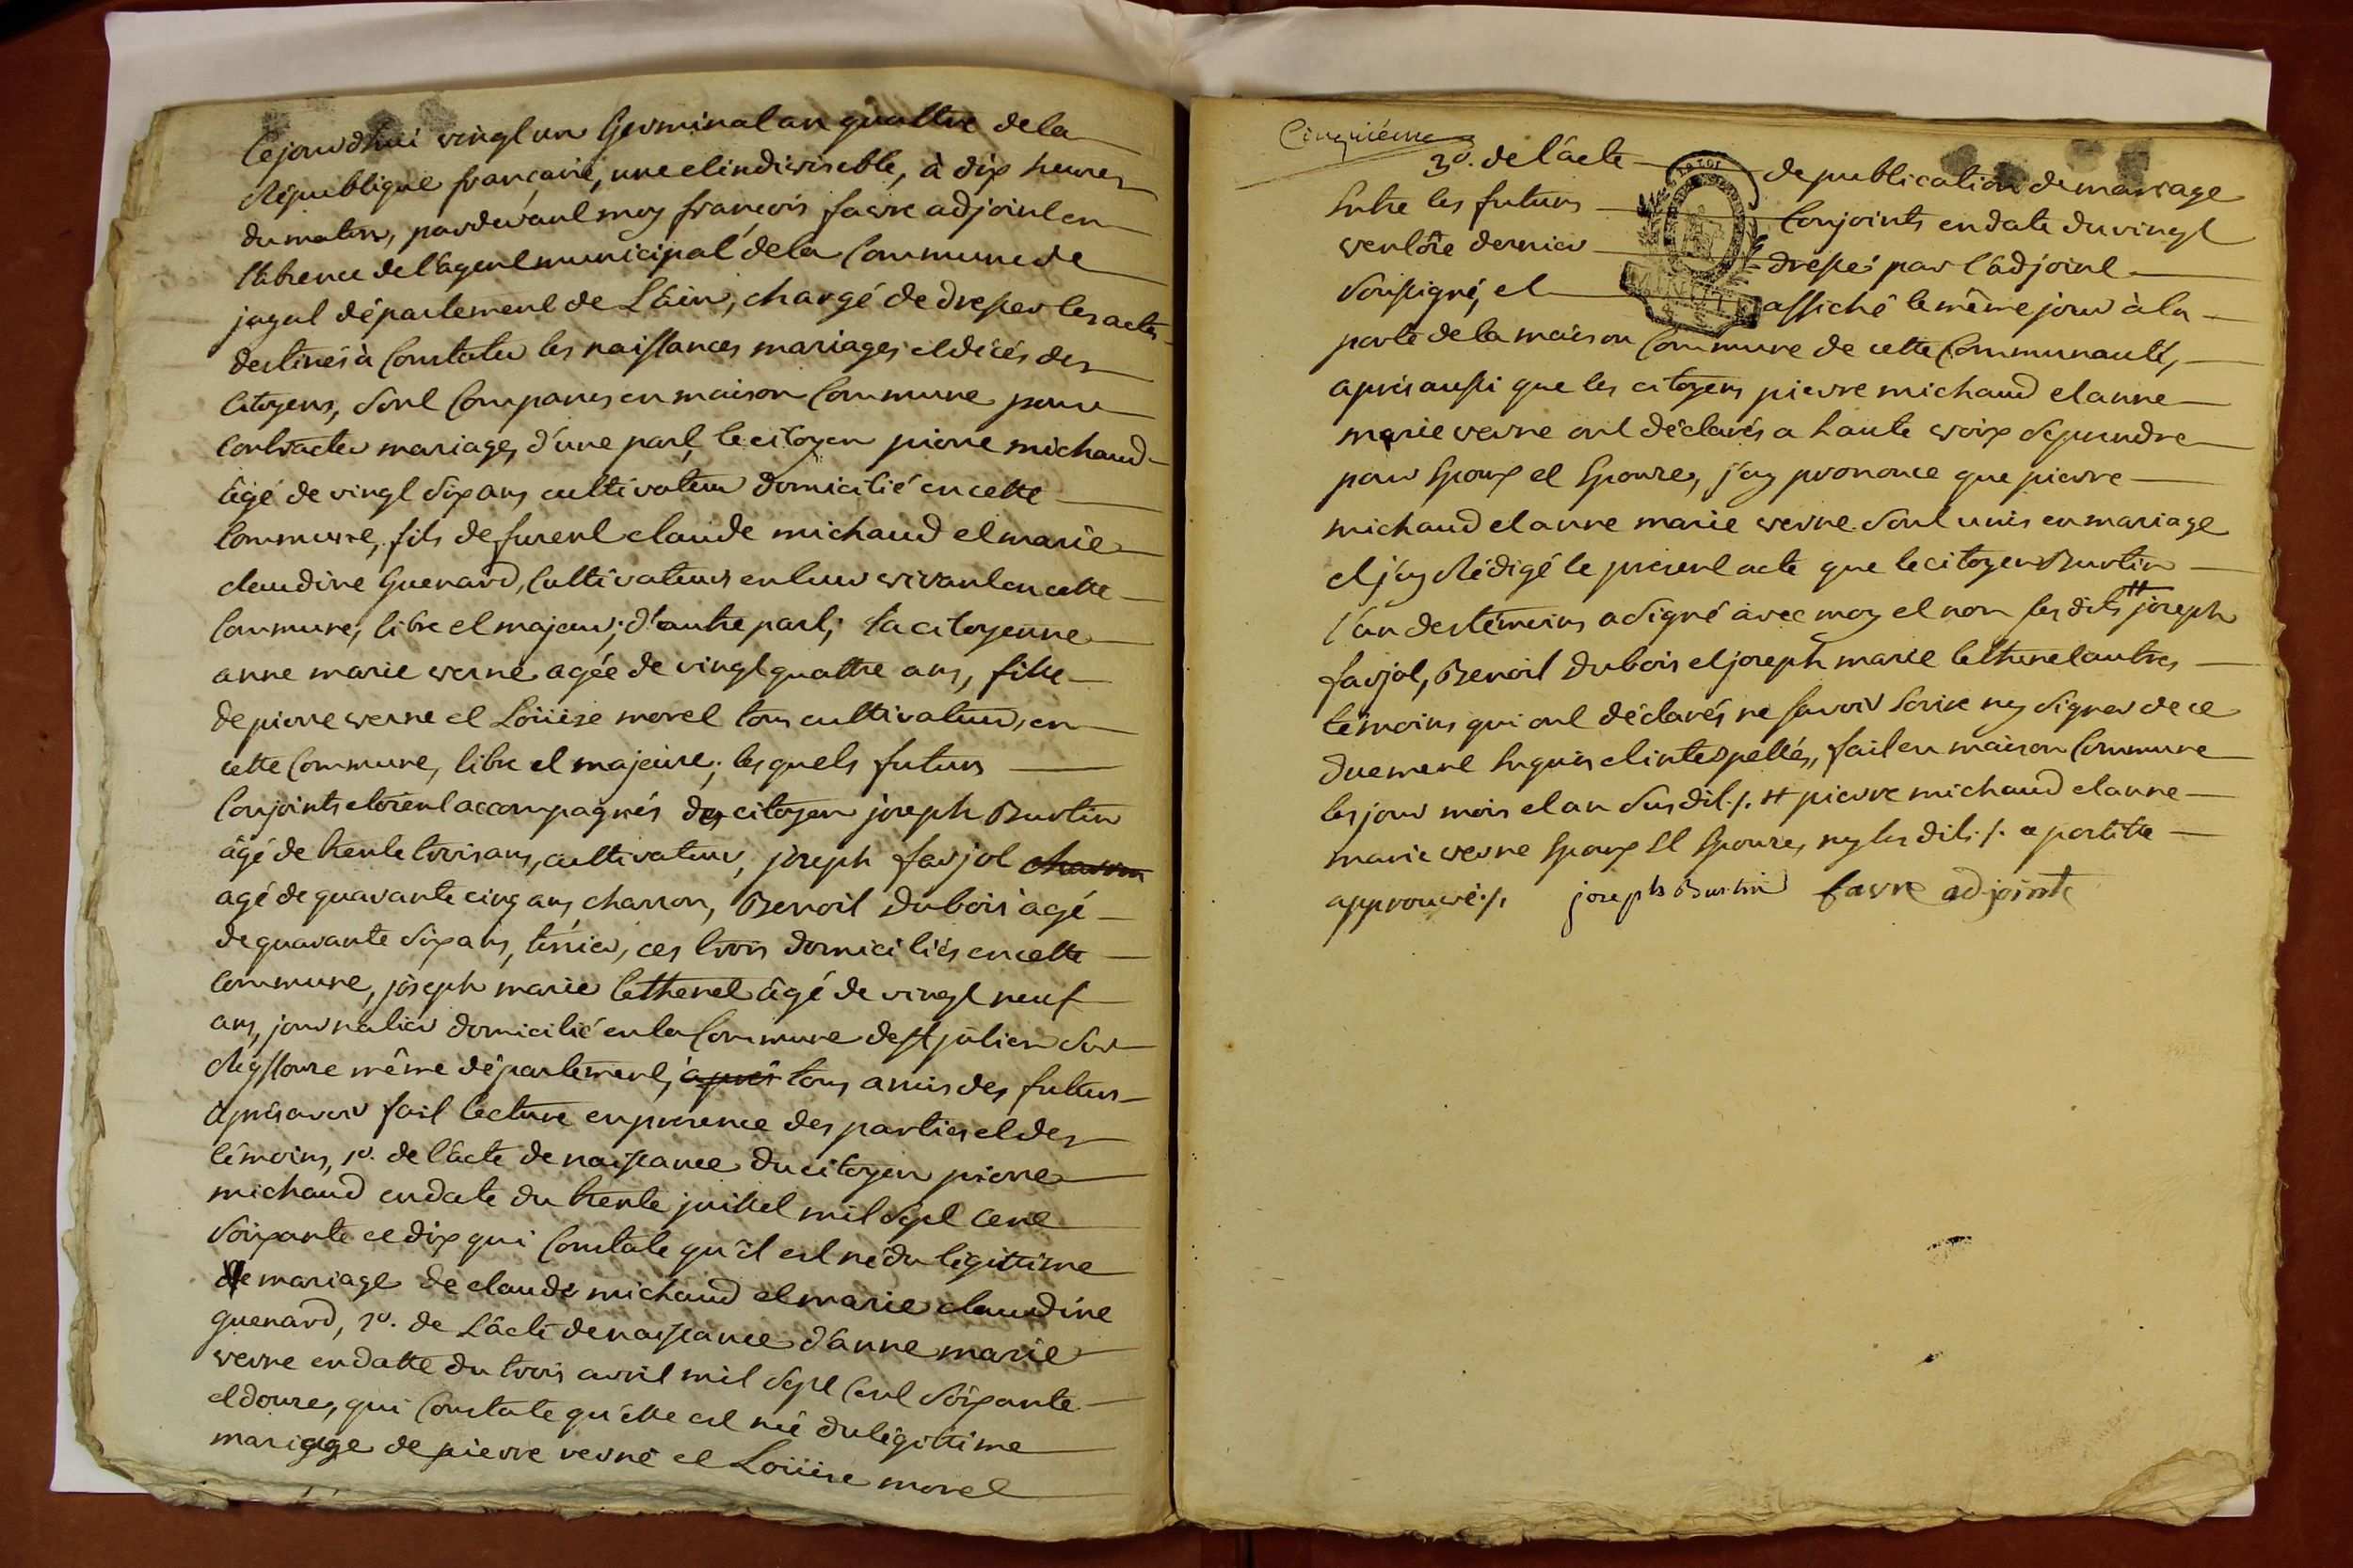 Cejourdhui vingt un Germinal an quattre de la
République françaisé, une et indivisible, à dix heures
du matin, pardevant moy françois favre adjoint en
l'absence de l'agent municipal de la Commune de
jayat département de L'ain, chargé de dresser les actes
destinés à Constater les naissances mariages et décés des
Citoyens, Sont Comparus en maison Commune pour
Contracter mariage, d'une part, le citoyen pierre michaud
âgé de vingt Six ans, cultivateur domicilié en cette
Commune, fils de furent claude michaud et marie
claudine Guenard, Cultivateurs en leur vivant en cette
Commune, libre et majeur; d'autre part; la citoyenne
anne marie verne agée de vingt quattre ans, fille
de pierre verne et Loüise morel tous cultivateurs en
cette Commune, libre et majeure; les quels futurs
Conjoints etoient accompagnés des citoyen joseph Burtin
âgé de trente trois ans, cultivateur, joseph favjol charron
agé de quarante cinq ans, charron, Benoit Dubois agé
de quarante Six ans, ces trois domiciliés en cette
Commune, joseph marie lethenet âgé de vingt neuf
ans, journalier domicilié en la Commune de St julien Sur
Reyssouze même département, après tous amis des futurs
après avoir fait lecture en presence des parties et des
témoins, 1º. de l'acte de naissance du citoyen pierre
michaud en date du trente juillet mil Sept Cent
Soixante et dix qui Constate qu'il est né du légittime
de mariage de claude michaud et marie claudine
guenard, 2º. de L'acte de naissance d'anne marie
verne en datte du trois avril mil Sept Cent Soixante
et douze, qui Constate qu'elle est née du légittime
mariage de pierre verne et Loüise morel
Cinquiéme
3º. de l'acte de publication de mariage
Entre les futurs Conjoints en date du vingt
ventôse dernier dressé par l'adjoint
Soussigné, et affiché le même jour à la
porte de la maison Commune de cette Communauté,
après aussi que les citoyens pierre michaud et anne
marie verne ont déclarés a haute voix Se prendre
pour Epoux et Epouse, j'ay prononce que pierre
michaud et anne marie verne Sont unis en mariage
et j'ay Rédigé le present acte que le citoyen Burtin
l'un des témoins a Signé avec moy et non les dits # joseph
favjol, Benoit Dubois et joseph marie lethenet autres
témoins qui ont déclarés ne savoir Ecrire ny Signer de ce
duement Enquis et interpellés, fait en maison Commune
les jour mois et an Sus dit ./. # pierre michaud et anne
marie verne Epoux Et Epouse, ny les dit ./. apostille
approuvé ./. joseph Burtin favre adjoint
LA LOI
MINUTE